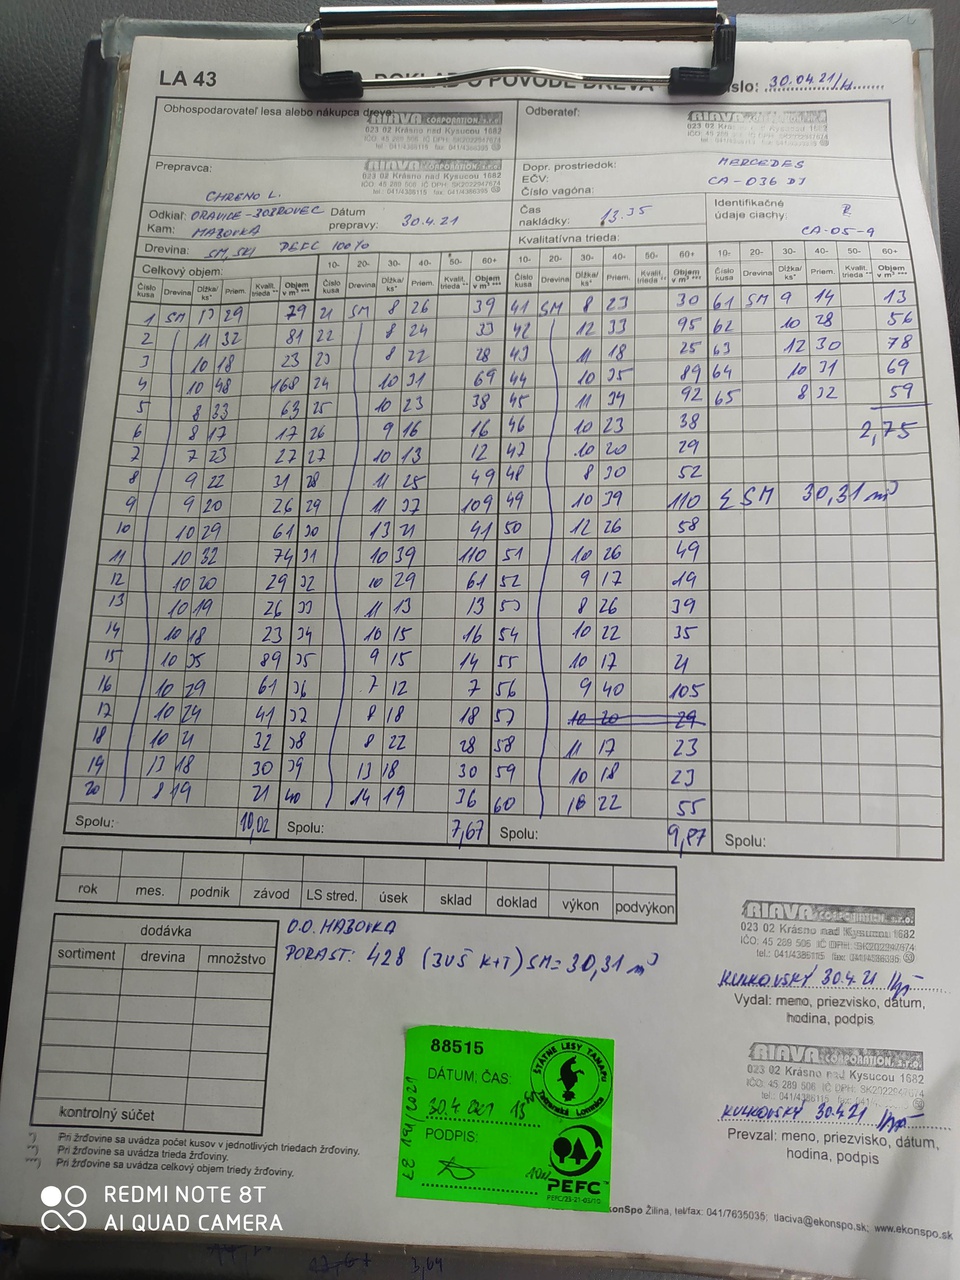 LA 43
DOKLAD O PÔVODE DREVA
číslo: 30.04.21/4
Obhospodarovateľ lesa alebo nákupca dreva:
RIAVA CORPORATION, s.r.o.
023 02 Krásno nad Kysucou 1682
Odberateľ:
RIAVA CORPORATION, s.r.o.
023 02 Krásno nad Kysucou 1682
Prepravca:
RIAVA CORPORATION, s.r.o.
023 02 Krásno nad Kysucou 1682
CHRENO L.
Dopr. prostriedok: MERCEDES
EČV: CA-036 DJ
Číslo vagóna:
Odkiaľ: ORAVICE-BOBROVEC
Kam: MAZOVKA
Dátum prepravy: 30.4.21
Čas nakládky: 13.35
Identifikačné údaje ciachy: R
CA-05-9
Drevina: SM, SKI PEFC 100%
Kvalitatívna trieda:
Celkový objem: 10- 20- 30- 40- 50- 60+ 10- 20- 30- 40- 50- 60+ 10- 20- 30- 40- 50- 60+
Číslo kusa Drevina Dĺžka/ks* Priem. Kvalit. trieda ** Objem v m³ *** Číslo kusa Drevina Dĺžka/ks* Priem. Kvalit. trieda ** Objem v m³ *** Číslo kusa Drevina Dĺžka/ks* Priem. Kvalit. trieda ** Objem v m³ *** Číslo kusa Drevina Dĺžka/ks* Priem. Kvalit. trieda ** Objem v m³ ***
1 SM 13 29 79 21 SM 8 26 39 41 SM 8 23 30 61 SM 9 14 13
2 11 32 81 22 8 24 33 42 12 33 95 62 10 28 56
3 10 18 23 23 8 22 28 43 11 18 25 63 12 30 78
4 10 48 168 24 10 31 69 44 10 35 89 64 10 31 69
5 8 33 63 25 10 23 38 45 11 34 92 65 8 32 59
6 8 17 17 26 9 16 16 46 10 23 38 2,75
7 7 23 27 27 10 13 12 47 10 20 29
8 9 22 31 28 11 25 49 48 8 30 52
9 9 20 26 29 11 37 109 49 10 39 110 Σ SM 30,31 m³
10 10 29 61 30 13 21 41 50 12 26 58
11 10 32 74 31 10 39 110 51 10 26 49
12 10 20 29 32 10 29 61 52 9 17 19
13 10 19 26 33 11 13 13 53 8 26 39
14 10 18 23 34 10 15 16 54 10 22 35
15 10 35 89 35 9 15 14 55 10 17 21
16 10 29 61 36 7 12 7 56 9 40 105
17 10 24 41 37 8 18 18 57 10 20 29
18 10 21 32 38 8 22 28 58 11 17 23
19 13 18 30 39 13 18 30 59 10 18 23
20 8 19 21 40 14 19 36 60 16 22 55
Spolu: 10,02 Spolu: 7,67 Spolu: 9,87 Spolu:
rok mes. podnik závod LS stred. úsek sklad doklad výkon podvýkon
dodávka
sortiment drevina množstvo
kontrolný súčet
O.O. MAZOVKA
PORAST: 428 (3VŠ K+T) SM = 30,31 m³
RIAVA CORPORATION, s.r.o.
023 02 Krásno nad Kysucou 1682
IČO: 45 289 506 IČ DPH: SK2022947674
KULKOVSKÝ 30.4.21
Vydal: meno, priezvisko, dátum,
hodina, podpis
RIAVA CORPORATION, s.r.o.
023 02 Krásno nad Kysucou 1682
IČO: 45 289 506 IČ DPH: SK2022947674
KULKOVSKÝ 30.4.21
Prevzal: meno, priezvisko, dátum,
hodina, podpis
88515
DÁTUM, ČAS:
30.4.2021
PODPIS:
ŠTÁTNE LESY TANAPU
Tatranská Lomnica
PEFC
PEFC/23-21-05/10
*) Pri žrďovine sa uvádza počet kusov v jednotlivých triedach žrďoviny.
**) Pri žrďovine sa uvádza trieda žrďoviny.
***) Pri žrďovine sa uvádza celkový objem triedy žrďoviny.
EkonSpo Žilina, tel/fax: 041/7635035; tlaciva@ekonspo.sk; www.ekonspo.sk
REDMI NOTE 8T
AI QUAD CAMERA